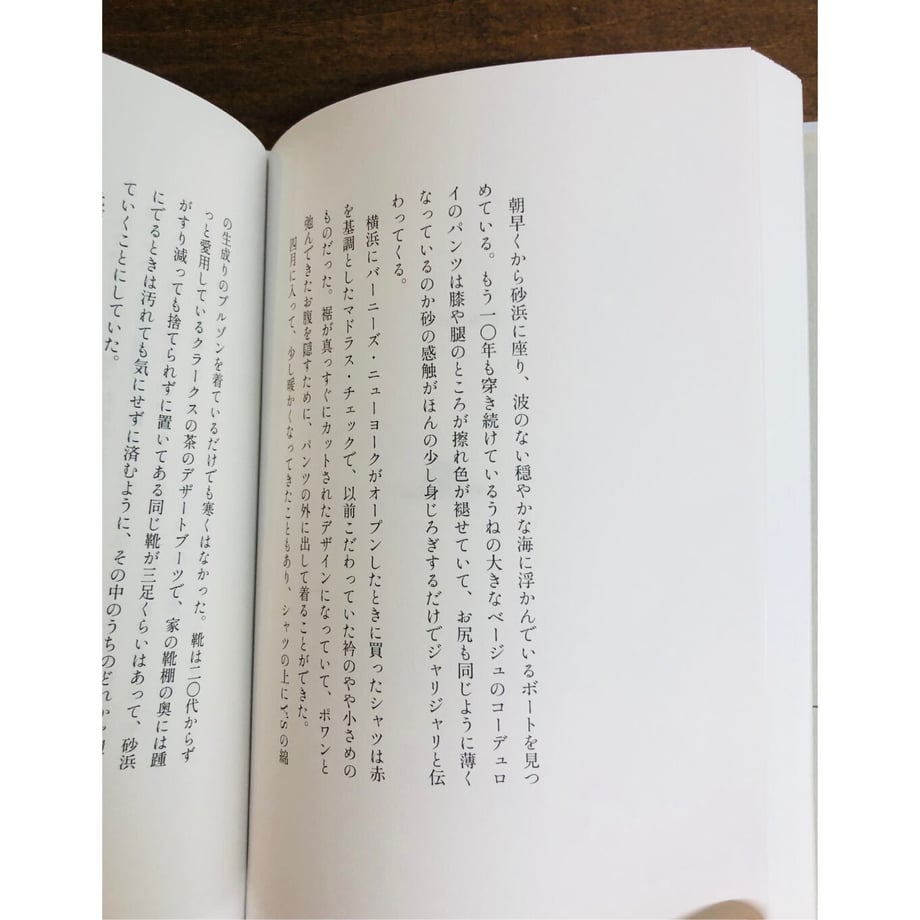 朝早くから砂浜に座り、波のない穏やかな海に浮かんでいるボートを見つ
めている。もう一〇年も穿き続けているうねの大きなベージュのコーデュロ
イのパンツは膝や腿のところが擦れ色が褪せていて、お尻も同じように薄く
なっているのか砂の感触がほんの少し身じろぎするだけでジャリジャリと伝
わってくる。
横浜にバーニーズ・ニューヨークがオープンしたときに買ったシャツは赤
を基調としたマドラス・チェックで、以前こだわっていた衿のやや小さめの
ものだった。裾が真っすぐにカットされたデザインになっていて、ポワンと
弛んできたお腹を隠すために、パンツの外に出して着ることができた。
四月に入って、少し暖かくなってきたこともあり、シャツの上にY'sの綿
の生成りのブルゾンを着ているだけでも寒くはなかった。靴は二〇代からず
っと愛用しているクラークスの茶のデザートブーツで、家の靴棚の奥には踵
がすり減っても捨てられずに置いてある同じ靴が三足くらいはあって、砂浜
にでるときは汚れても気にせずに済むように、その中のうちのどれか
ていくことにしていた。